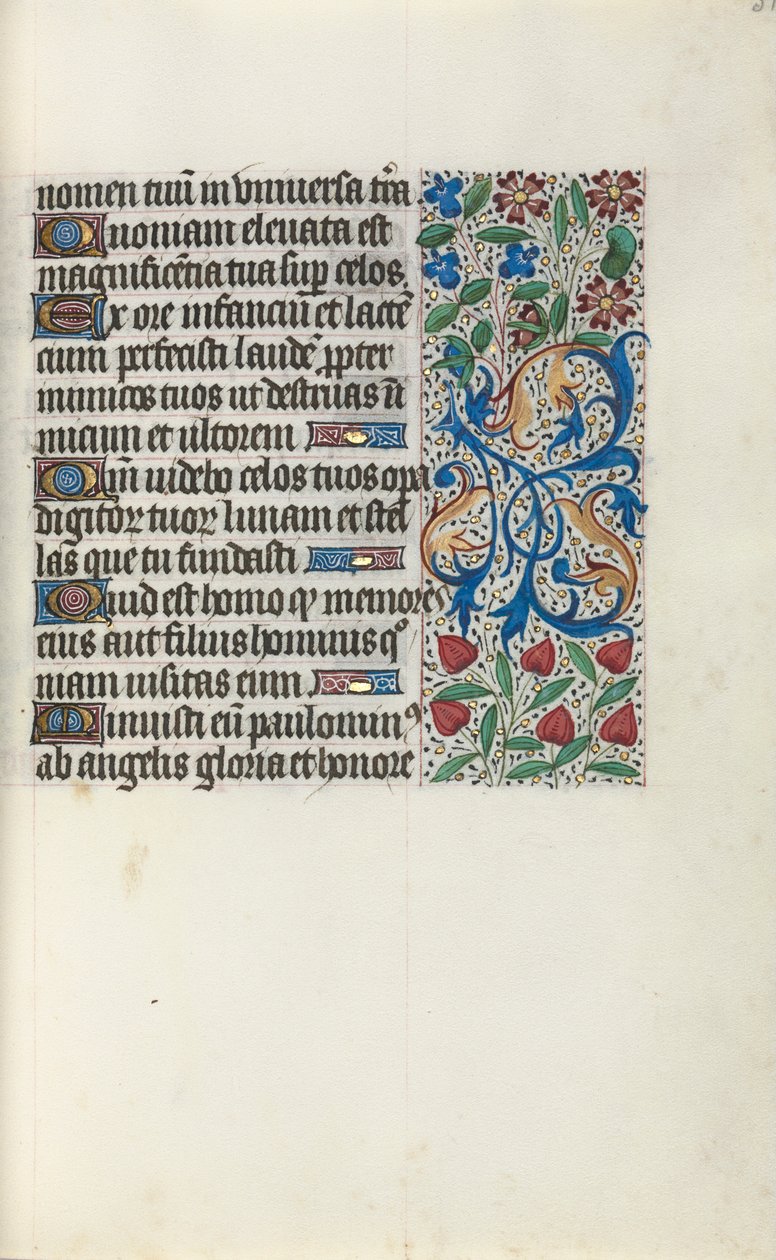 nomen tuū in vniuersa tr̄a.
Quoniam eleuata est
magnificētia tua sup celos.
Ex ore infanciū et lactē
cium perfecisti laudē ꝓpter
inimicos tuos ut destruas in̄
micum et ultorem
Qm̄ uidebo celos tuos opa
digitoꝝ tuoꝝ lunam et stel
las que tu fundasti
Quid est homo ꝙ memor es
eius aut filius hominis qº
niam uisitas eum.
Minuisti eū paulominꝰ
ab angelis gloria et honore